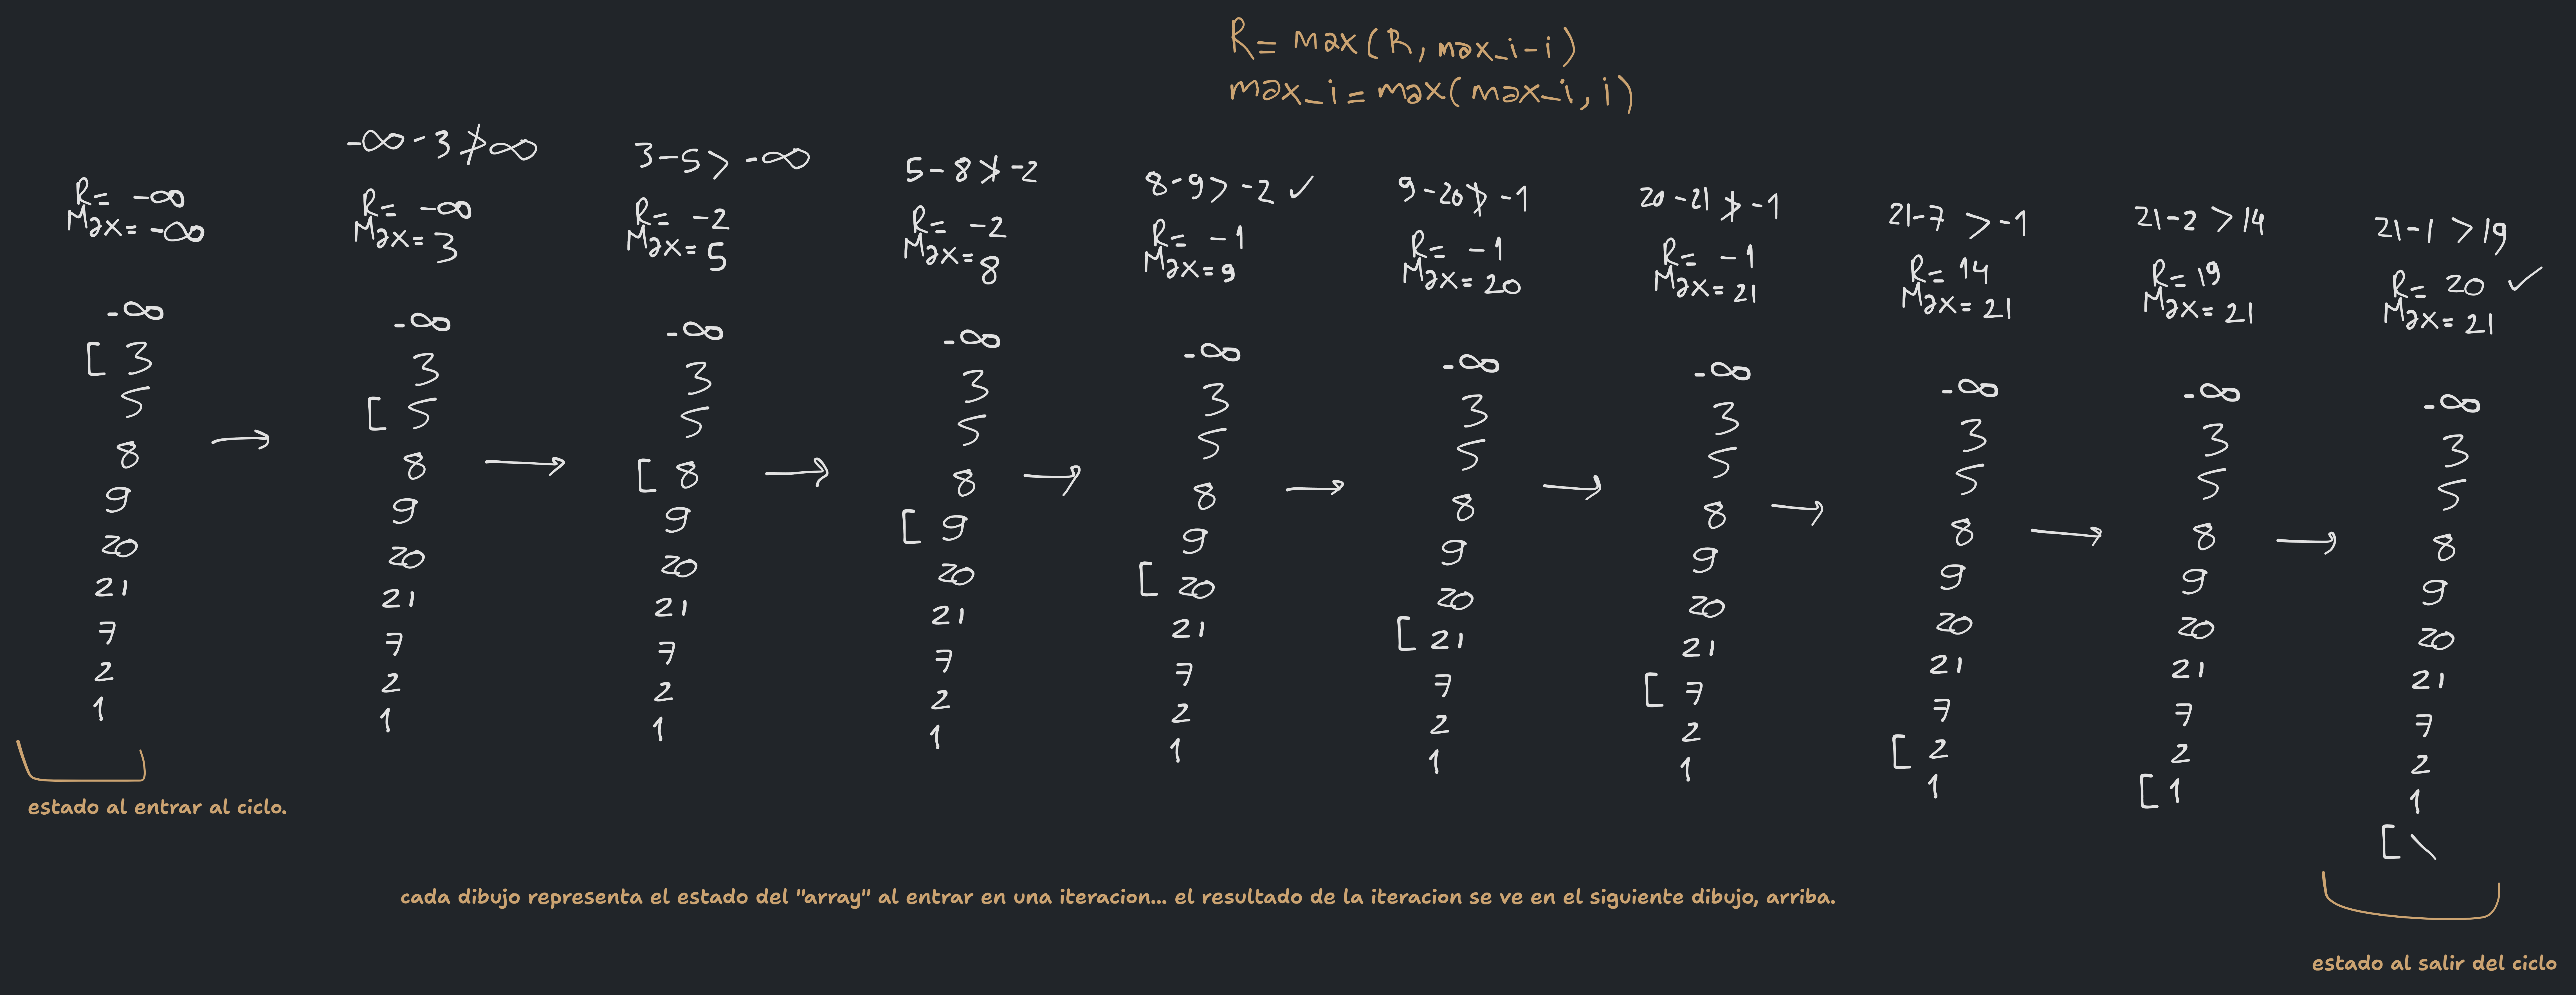 R= max(R, max_i-i)
max_i = max(max_i, i)
R= -∞
Max= -∞
-∞
[ 3
5
8
9
20
21
7
2
1
estado al entrar al ciclo.
→
-∞-3 ≯ ∞
R= -∞
Max= 3
-∞
3
[ 5
8
9
20
21
7
2
1
→
3-5 > -∞
R= -2
Max= 5
-∞
3
5
[ 8
9
20
21
7
2
1
→
5-8 ≯ -2
R= -2
Max= 8
-∞
3
5
8
[ 9
20
21
7
2
1
→
8-9 > -2 ✓
R= -1
Max= 9
-∞
3
5
8
9
[ 20
21
7
2
1
→
9-20 ≯ -1
R= -1
Max= 20
-∞
3
5
8
9
20
[ 21
7
2
1
→
20-21 ≯ -1
R= -1
Max= 21
-∞
3
5
8
9
20
21
[ 7
2
1
→
21-7 > -1
R= 14
Max= 21
-∞
3
5
8
9
20
21
7
[ 2
1
→
21-2 > 14
R= 19
Max= 21
-∞
3
5
8
9
20
21
7
2
[ 1
→
21-1 > 19
R= 20 ✓
Max= 21
-∞
3
5
8
9
20
21
7
2
1
[ \
cada dibujo representa el estado del "array" al entrar en una iteracion... el resultado de la iteracion se ve en el siguiente dibujo, arriba.
estado al salir del ciclo